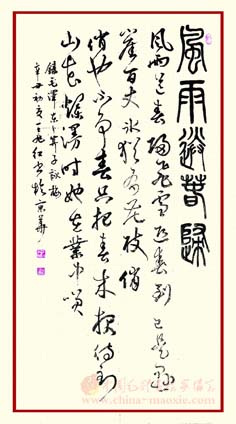 風雨送春歸
風雨送春歸飛雪迎春到已是懸
崖百丈冰猶有花枝俏
俏也不争春只把春来報待到
山花爛漫时她在叢中笑
錄毛澤东卜算子詠梅
辛丑初夏 红书於京華
www.china-maoxie.com